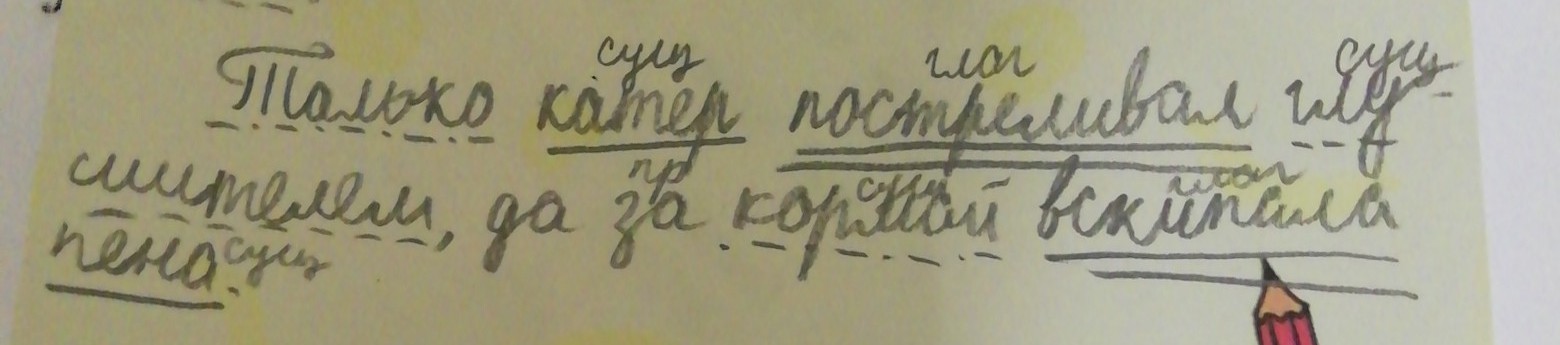 сущ глаг сущ
Только катер постреливал глу
пр сущ глаг
шителем, да за кормой вскипала
пена. сущ